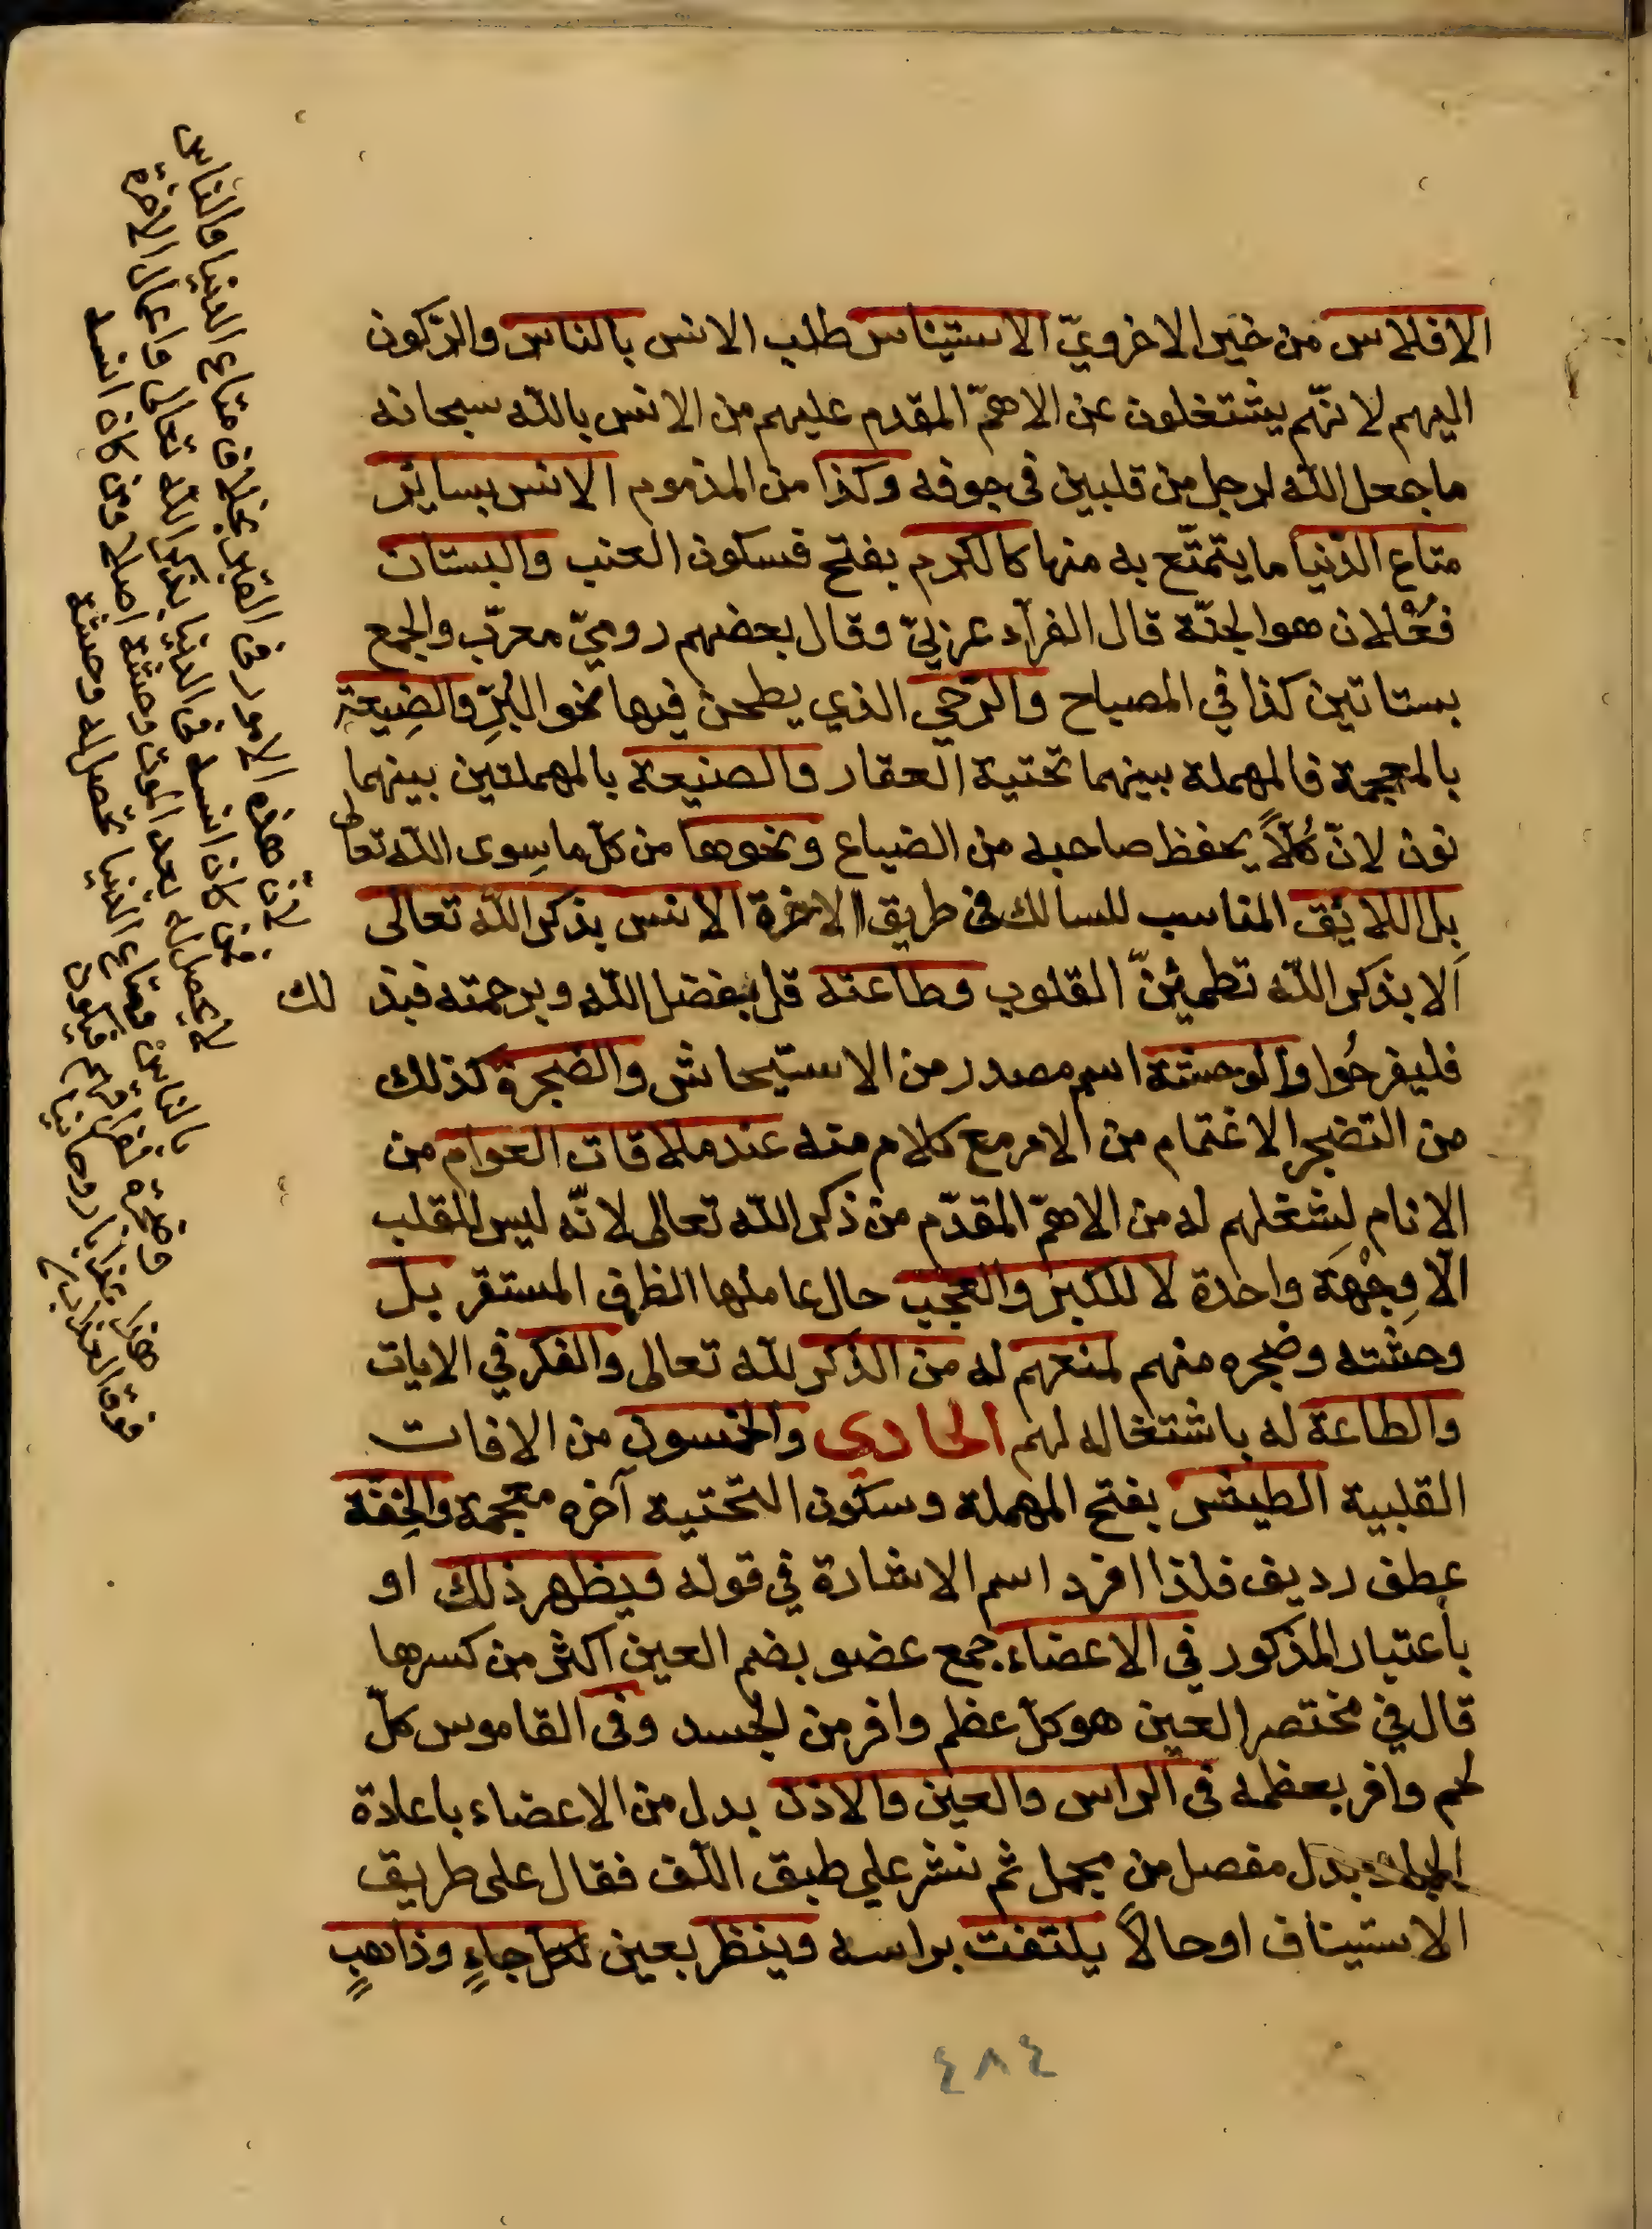 الافلاس من خير الاخرويّ الاستيناس طلب الانس بالناس والركون
اليهم لانّهم يشتغلون عن الاهمّ المقدم عليهم من الانس بالله سبحانه
ما جعل الله لرجل من قلبين فى جوفه وكذا من المذموم الانس بسائر
متاع الدّنيا ما يتمتّع به منها كالكرم بفتح فسكون العنب والبستان
فُعْلان هو الجنّة قال الفرّاء عربيّ وقال بعضهم روميّ معرّب والجمع
بساتين كذا في المصباح والرّحى الذي يطحن فيها نحو البُرّ والضيعة
بالمعجمة فالمهملة بينهما تحتية العقار والصنيعة بالمهملتين بينهما
نون لانّ كُلّاً يحفظ صاحبه من الضياع ونحوها من كلّ ما سِوى الله تعالى
بل اللائق المناسب للسالك فى طريق الاخرة الانس بذكر الله تعالى
ألا بذكر الله تطمئنّ القلوب وطاعته قل بفضل الله وبرحمته فبذلك
فليفرحُوا والوحشة اسم مصدر من الاستيحاش والضجرة كذلك
من التضجر الاغتمام من الامر مع كلام منه عند ملاقات العوام من
الانام لِشغلهم له من الاهمّ المقدّم من ذكر الله تعالى لانّه ليس للقلب
الّا وِجْهَة واحدة لا للكبر والعجب حال عاملها الظرف المستقر بل
وحشته وضجره منهم لمنعهم له من الذكر لله تعالى والفكر في الايات
والطاعة له باشتغاله لهم الحادي والخمسون من الافات
القلبية الطيش بفتح المهملة وسكون التحتية آخره معجمة والخِفّة
عطف رديف فلذا افرد اسم الاشارة في قوله ويظهر ذلك او
باعتبار المذكور في الاعضاء جمع عضو بضم العين اكثر من كسرها
قال في مختصر العين هو كلّ عظم وافر من الجسد وفى القاموس كلّ
لحم وافر بعظمه فى الراس والعين والاذن بدل من الاعضاء باعادة
بدل مفصل من مجمل ثم نشر على طبق اللّف فقال على طريق
الاستيناف او حالاً يلتفت براسه وينظر بعين لكل جاءٍ وذاهبٍ
لانّ هذه الامور فى القبر بخلاف متاع الدنيا والناس
فمن كان انسه فى الدنيا بذكر الله تعالى واعمال الاخرة
لا يحصل له بعد الموت وحشة اصلا ومن كان انسه
بالناس ومتاع الدنيا يحصل له وحشة
٤٨٤